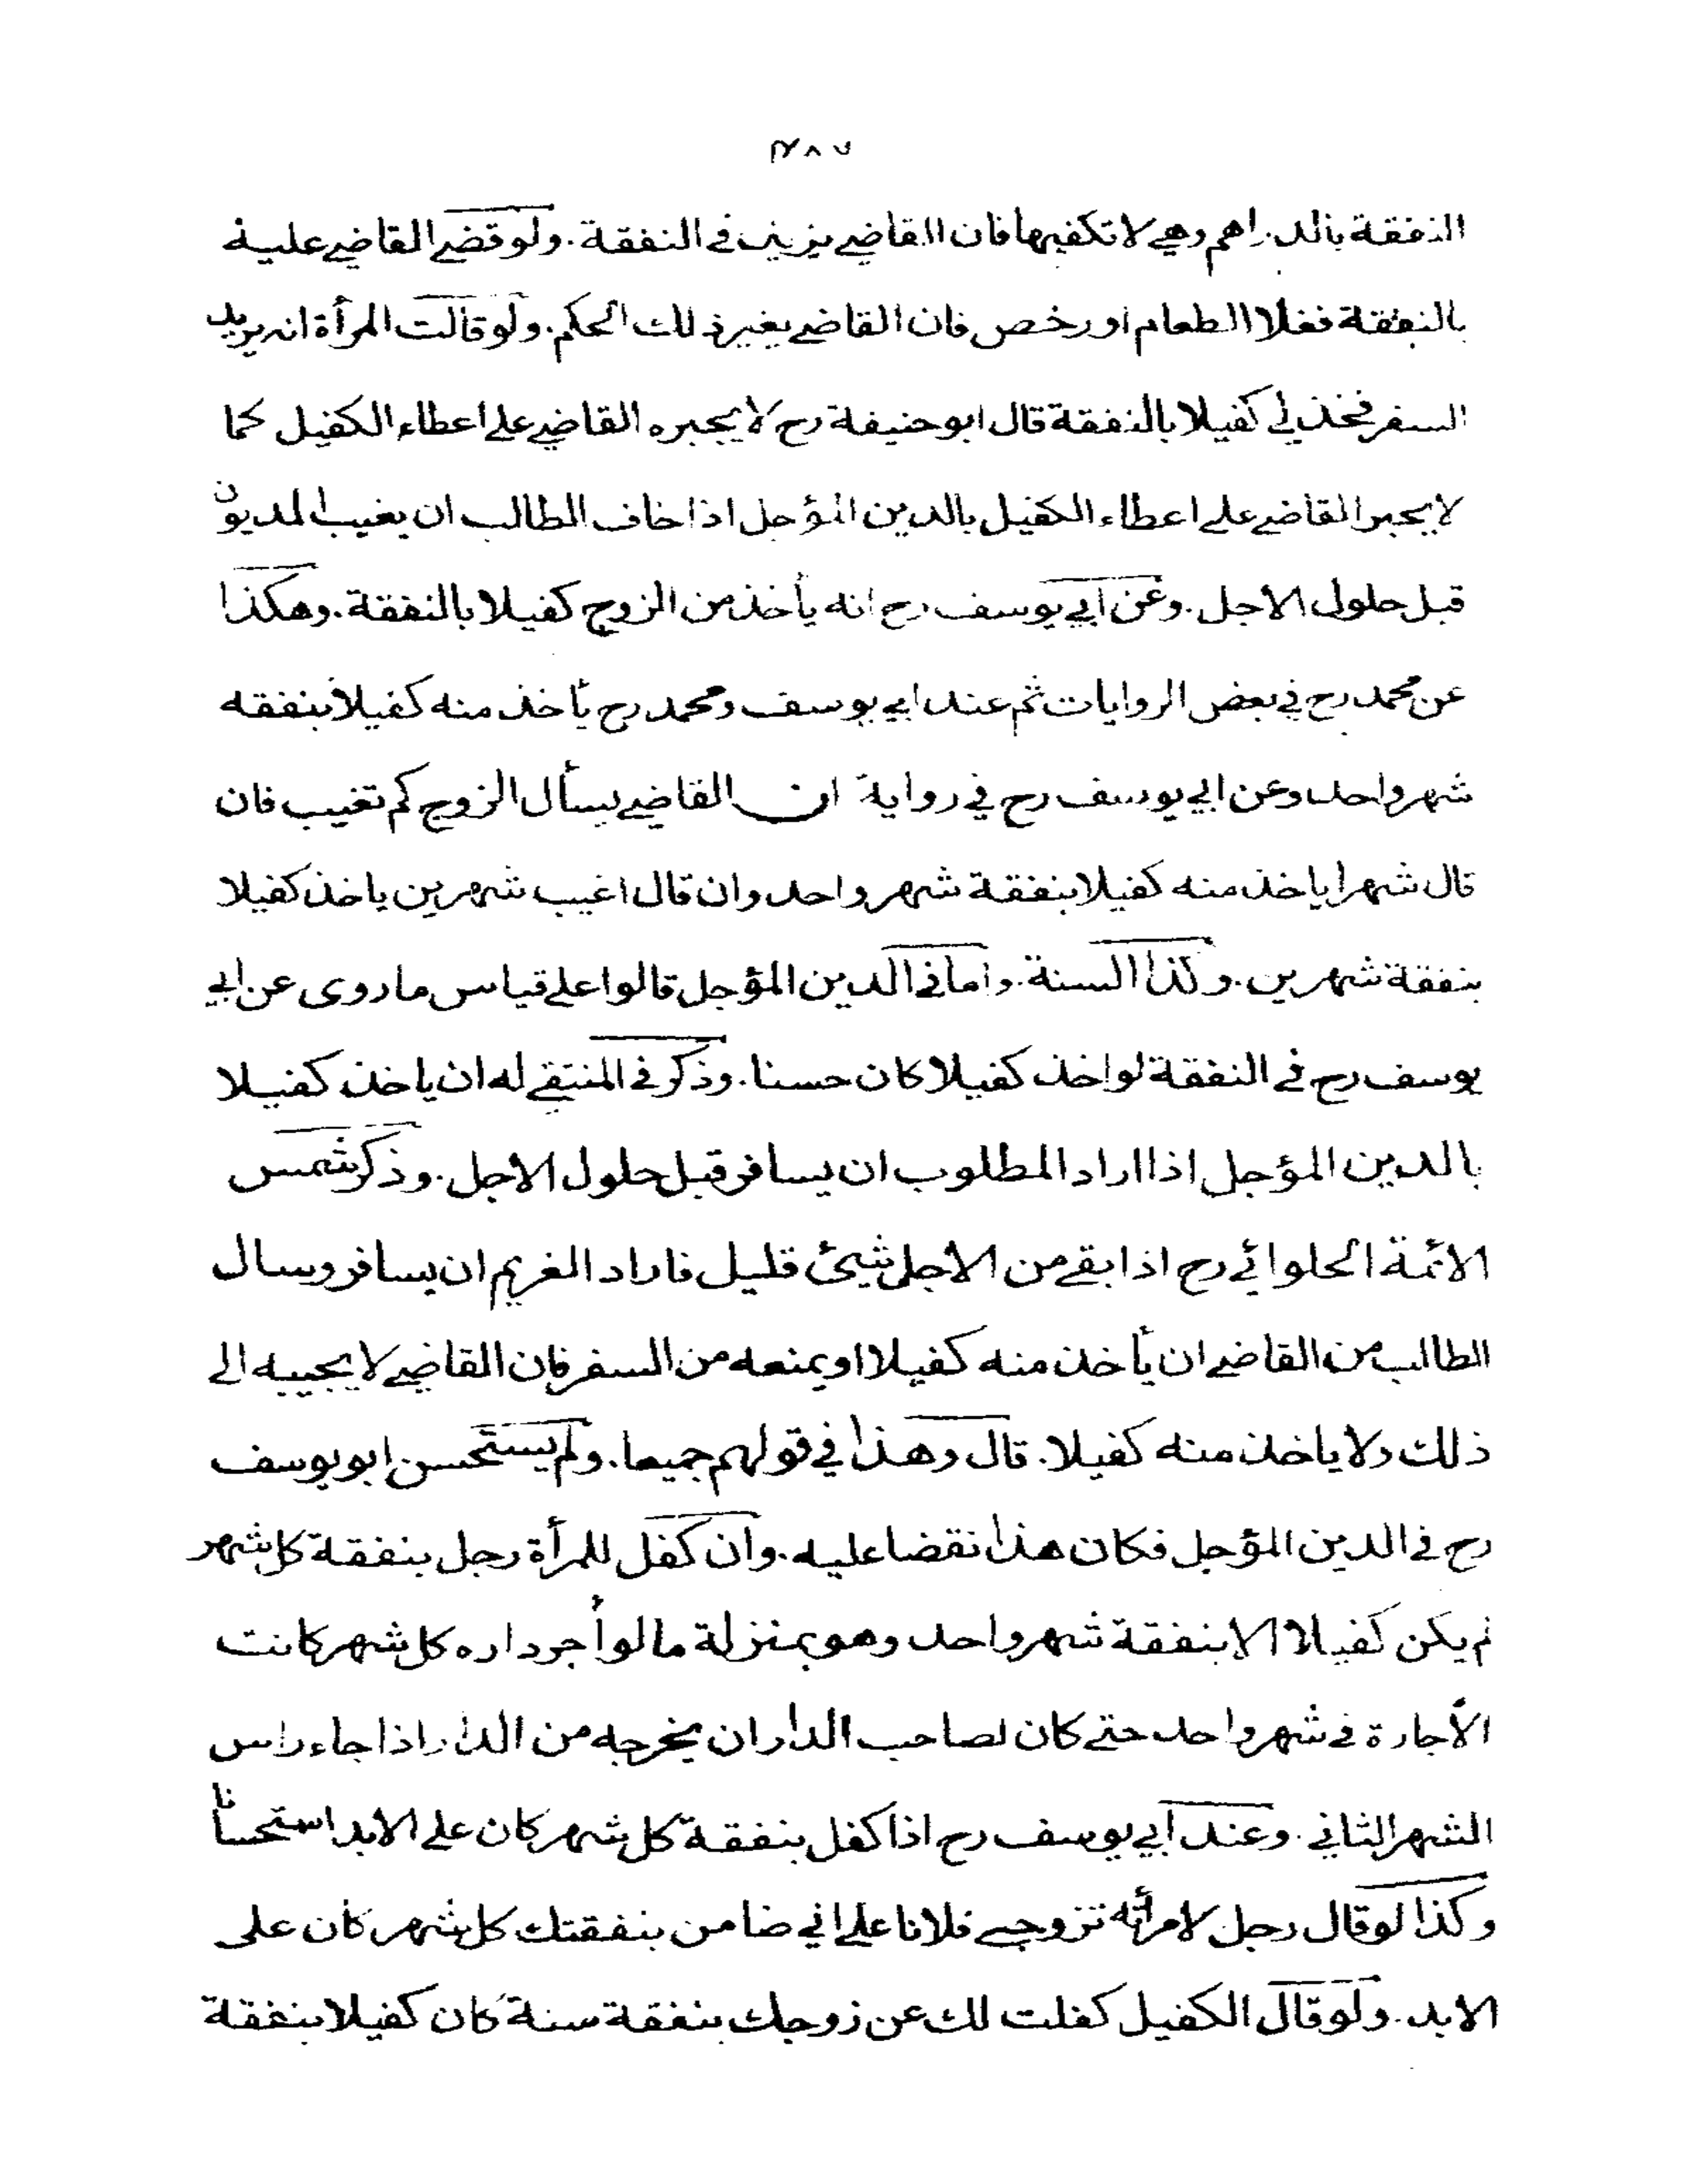 ٤٨٧
النفقة بالدراهم وهي لا تكفيها فان القاضي يزيد في النفقة. ولو قضي القاضي عليه
بالنفقة فغلا الطعام او رخص فان القاضي يغير ذلك الحكم. ولو قالت المرأة انه يريد
السفر فخذ لي كفيلا بالنفقة قال ابو حنيفة رح لا يجبره القاضي علي اعطاء الكفيل كما
لا يجبر القاضي علي اعطاء الكفيل بالدين المؤجل اذا خاف الطالب ان يغيب المديون
قبل حلول الاجل. وعن ابي يوسف رح انه يأخذ من الزوج كفيلا بالنفقة. وهكذا
عن محمد رح في بعض الروايات ثم عند ابي يوسف ومحمد رح يأخذ منه كفيلا بنفقه
شهر واحد وعن ابي يوسف رح في رواية ان القاضي يسأل الزوج كم تغيب فان
قال شهرا ياخذ منه كفيلا بنفقة شهر واحد وان قال اغيب شهرين ياخذ كفيلا
بنفقة شهرين. وكذا السنة. واما في الدين المؤجل قالوا علي قياس ما روى عن ابي
يوسف رح في النفقة لو اخذ كفيلا كان حسنا. وذكر في المنتقي له ان ياخذ كفيلا
بالدين المؤجل اذا اراد المطلوب ان يسافر قبل حلول الاجل. وذكر شمس
الائمة الحلوائي رح اذا بقي من الاجل شيئ قليل فاراد الغريم ان يسافر وسال
الطالب من القاضي ان يأخذ منه كفيلا او يمنعه من السفر فان القاضي لا يجيبه الي
ذلك ولا ياخذ منه كفيلا. قال وهذا في قولهم جميعا. ولم يستحسن ابو يوسف
رح في الدين المؤجل فكان هذا نقضا عليه. وان كفل للمرأة رجل بنفقة كل شهر
لم يكن كفيلا الا بنفقة شهر واحد وهو بمنزلة ما لو أجر داره كل شهر كانت
الأجارة في شهر واحد حتي كان لصاحب الدار ان يخرجه من الدار اذا جاء راس
الشهر الثاني. وعند ابي يوسف رح اذا كفل بنفقة كل شهر كان علي الابد استحسانا
وكذا لو قال رجل لامرأته تزوجي فلانا علي اني ضامن بنفقتك كل شهر كان على
الابد. ولو قال الكفيل كفلت لك عن زوجك بنفقة سنة كان كفيلا بنفقة